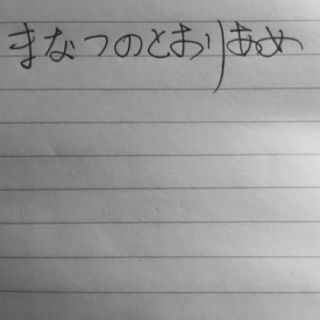 まなつのとおりあめ